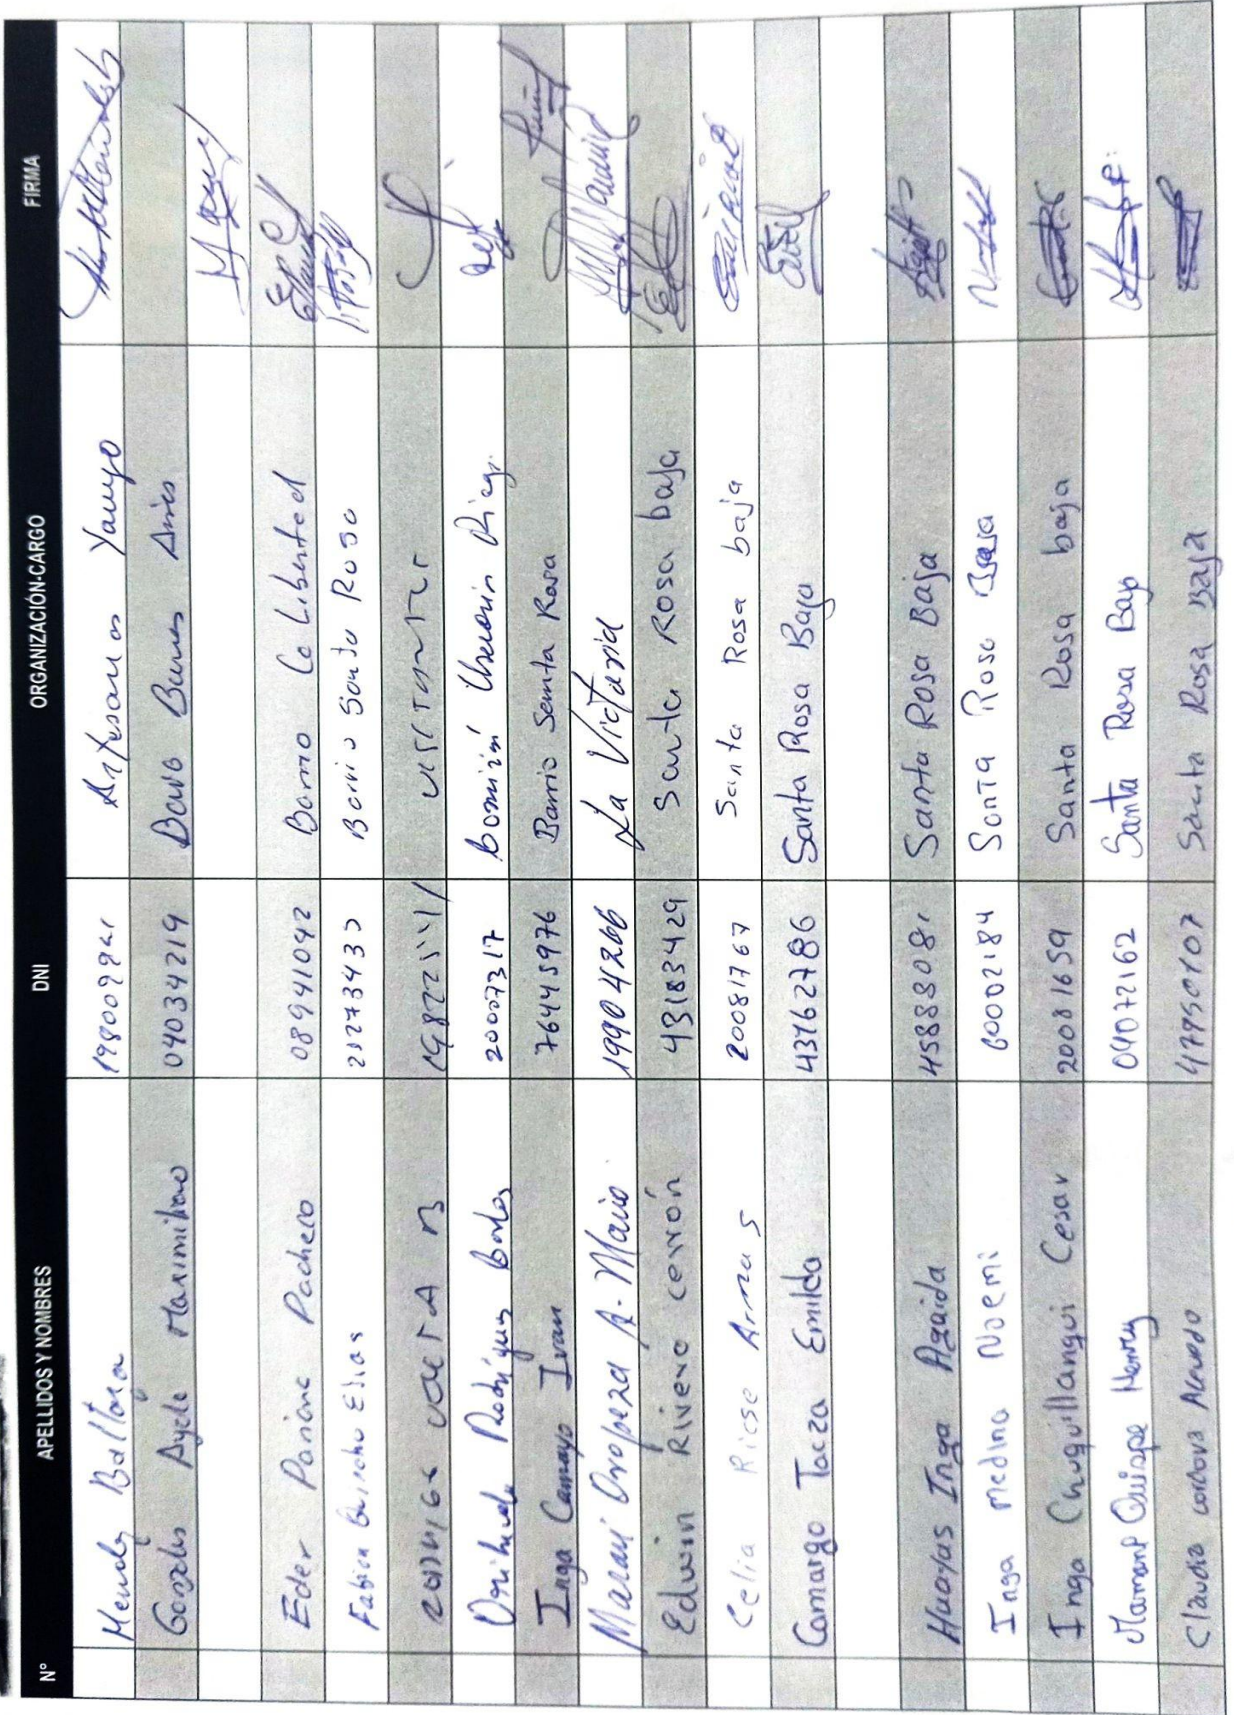 N° APELLIDOS Y NOMBRES DNI ORGANIZACIÓN-CARGO FIRMA
Mendez Baltazar Artesanos Yauyo
Gonzales Ayele Maximiliano 04034219 Barrio Buenos Aires
Eder Pacheco 08941092 Barrio La Libertad
Fabian Elias 21273433 Barrio Santa Rosa
Rodríguez 20073317
Inga Camayo Ivan 76445976 Barrio Santa Rosa
Maraví Oropeza A. Mario 19904266 La Victoria
Edwin Rivero cerrón 43183429 Santa Rosa baja
Celia Ricse Armas 20081767 Santa Rosa baja
Camargo Taza Emilda 43762786 Santa Rosa Baja
Huayas Inga Agaida 45883081 Santa Rosa Baja
Inga medina Noemi 60002184 Santa Rosa Baja
Inga Chuquillanqui Cesar 20081659 Santa Rosa baja
Mamani Quispe Henry 04072162 Santa Rosa Baja
Claudia cordova Acevedo 47950107 Santa Rosa Baja